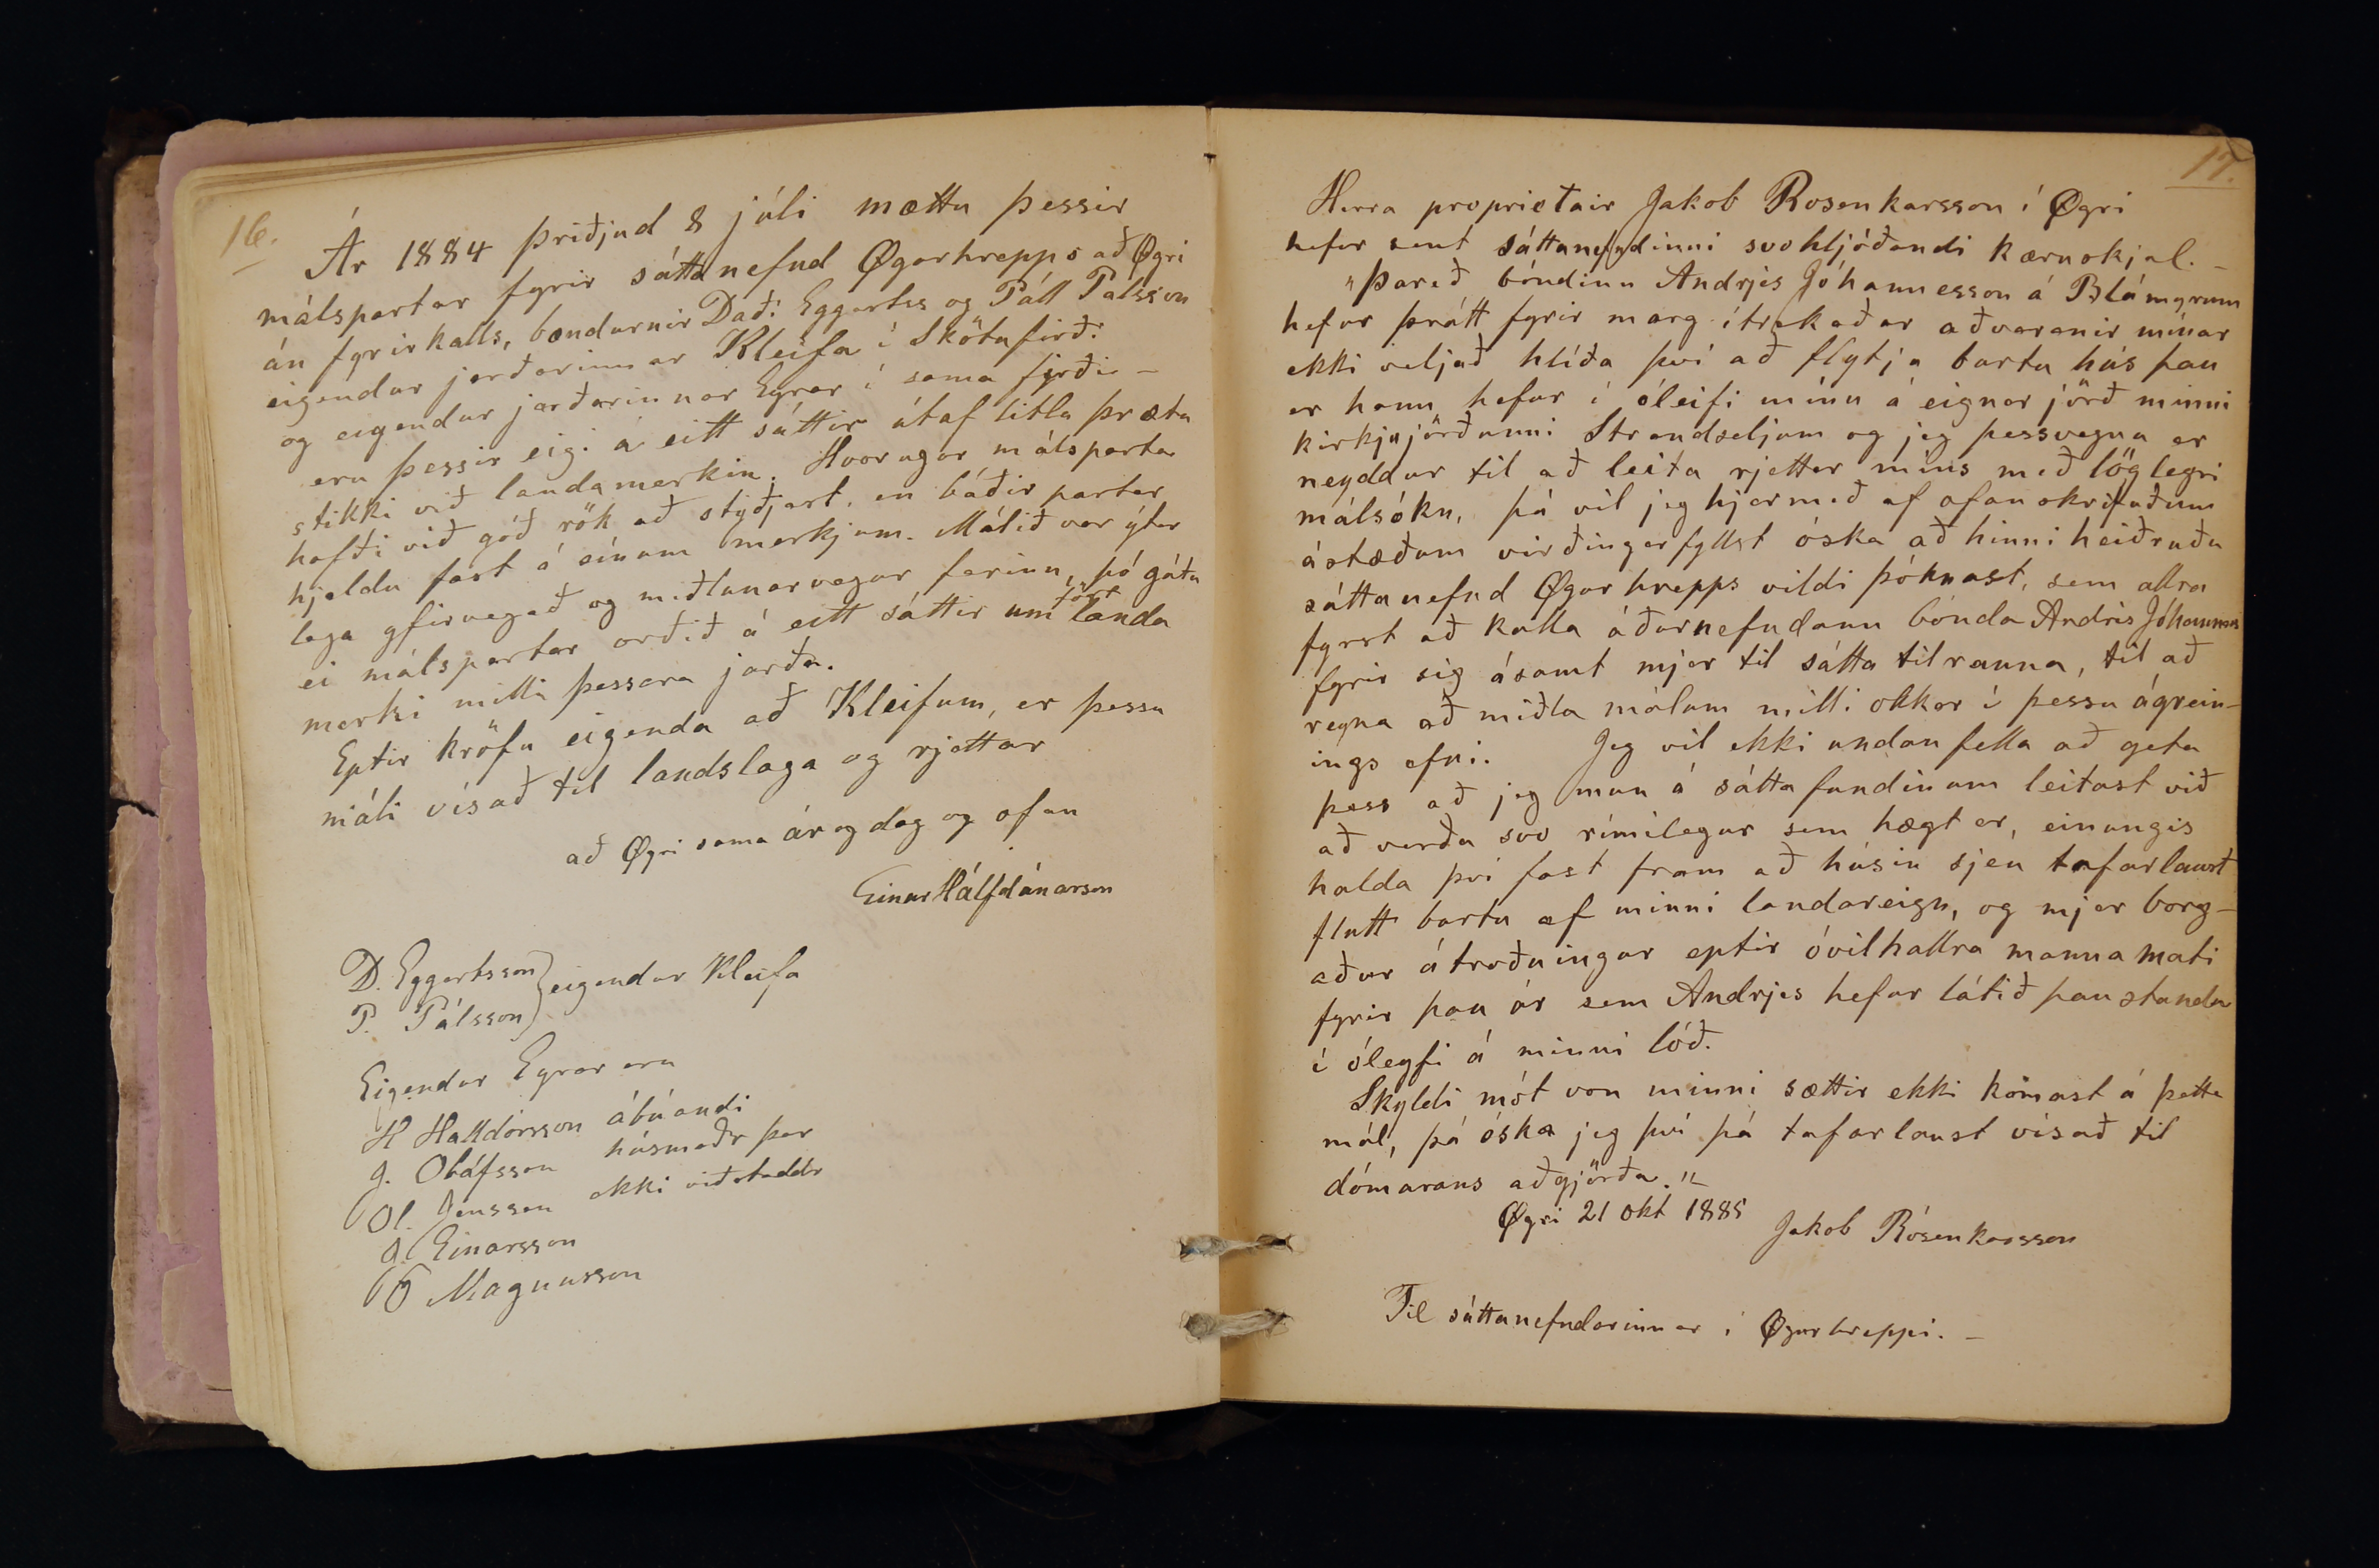 16.
Ár 1884 þriðjud 8 júli mættu þessir
málspartar fyrir sáttanefnd Øgurhrepps að Øgri
án fyrirkalls, bændurnir Daði Eggertss og Páll Pálsson
eigendur jarðarinnar Kleifa í Skötufirði
og eigendur jarðarinnar Eyrar í sama firði –
eru þessir eigi á eitt sáttir útaf litlu þrætu
stikki við landamerkin. Hvorugur málsparta
hafði við góð rök að styðjast, en báðir partar
hjeldu fast á sínum merkjum. Málið var ýtar
lega yfirvegað og miðlunarvegur farinn, þó gátu
ei málspartar orðið á eitt sáttir um land
merki milli þessara jarða.
Eptir kröfu eigenda að Kleifum, er þessu
máli vísað til landslaga og rjettar
að Øgri sama ár og dag og ofan
Einar Hálfdánarson
D. Eggertsson
P. Pálsson } eigendur Kleifa
Eigendur Eyrar eru
H Halldórsson ábúandi
J. Oláfsson húsmaðr þar
Ol. Jensson ekki viðstaddr
J. Einarsson
Magnusson
17.
Herra proprietair Jakob Rosenkarsson í Øgri
hefur sent sáttanefndinni svohljóðandi kæruskjal. –
"Þareð bóndinn Andrjes Jóhannesson á Blámyrum
hefur þrátt fyrir marg ítrekaðar aðvaranir mínar
ekki viljað hlíða því að flytja burtu hús þau
er hann hefur í óleifi mínu á eignar jörð minni
kirkjujörðunni Strandseljum og jeg þessvegna er
neyddur til að leita rjettar míns með löglegri
málsókn, þá vil jeg hjermeð af ofanskrifuðum
ástæðum virðingarfyllst óska að hinni heiðruðu
sáttanefnd Øgurhrepps vildi þóknast, sem allra
fyrst að kalla áðurnefndann bónda Andrés Jóhanness
fyrir sig ásamt mjer til sátta tilrauna, til að
reyna að miðla málum milli okkar í þessu ágrein-
ings efni. Jeg vil ekki undanfella að geta
þess að jeg mun á sáttafundinum leitast við
að verða svo rímilegur sem hægt er, einungis
halda því fast fram að húsin sjeu tafarlaust
flutt burtu af minni landareign, og mjer borg-
aður átroðningur eptir óvilhallra manna mati
fyrir þau ár sem Andrjes hefur látið þau standa
í óleyfi á minni lóð.
Skyldi mót von minni sættir ekki komast á þetta
mál, þá óska jeg því þá tafarlaust vísað til
dómarans aðgjörða."
Øgri 21 okt 1885
Jakob Rósenkarsson
Til sáttanefndarinnar í Øgurhreppi. –